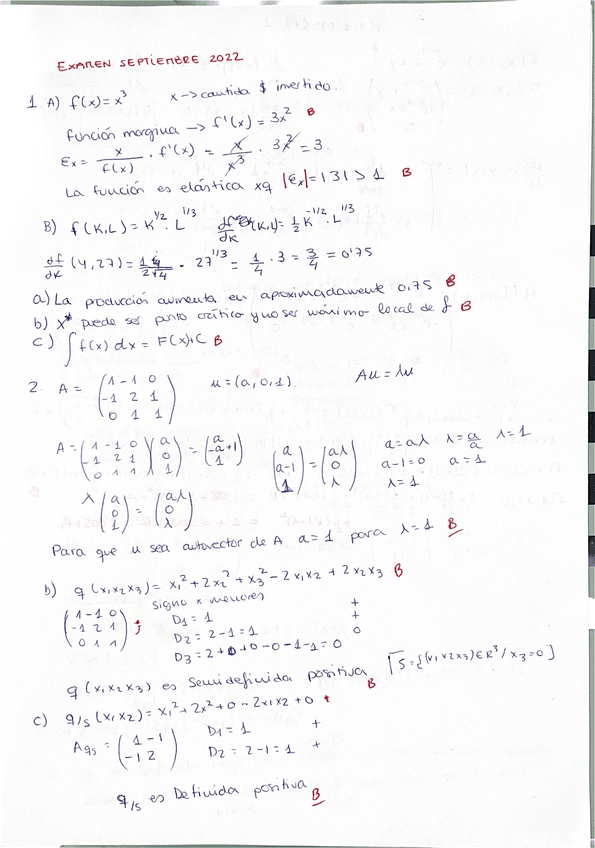 EXAMEN SEPTIEMBRE 2022
1. A) f(x) = x³ x → cantidad $ invertido.
función marginal → f'(x) = 3x² B
Ex = x/f(x) · f'(x) = x/x³ · 3x² = 3.
La función es elástica xq |Ex| = |3| > 1 B
B) f(K,L) = K^1/2 · L^1/3 df/dK (K,L) = 1/2 K^-1/2 · L^1/3
df/dK (4,27) = · 27^1/3 = 1/4 · 3 = 3/4 = 0'75
a) La producción aumenta en aproximadamente 0,75 B
b) X* puede ser punto crítico y no ser máximo local de f B
c) ∫ f(x) dx = F(x)+C B
2. A = (1 -1 0 / -1 2 1 / 0 1 1) u = (a, 0, 1). Au = λu
A = (1 -1 0 / -1 2 1 / 0 1 1) (a / 0 / 1) = (a / -a+1 / 1) (a / a-1 / 1) = (aλ / 0 / λ) a = aλ λ = a/a λ = 1
a-1 = 0 a = 1
λ = 1
λ (a / 0 / 1) = (aλ / 0 / λ)
Para que u sea autovector de A a = 1 para λ = 1 B
b) q (x1 x2 x3) = x1² + 2x2² + x3² - 2x1x2 + 2x2x3 B
signo x menores
(1 -1 0 / -1 2 1 / 0 1 1) ; D1 = 1 +
D2 = 2-1 = 1 +
D3 = 2+0+0-0-1-1 = 0 0
q (x1 x2 x3) es Semidefinida positiva B [S = {(x1 x2 x3) ∈ R³ / x3 = 0}]
c) q/s (x1 x2) = x1² + 2x² + 0 - 2x1x2 + 0
Aqs = (1 -1 / -1 2) D1 = 1 +
D2 = 2-1 = 1 +
q/s es Definida positiva B